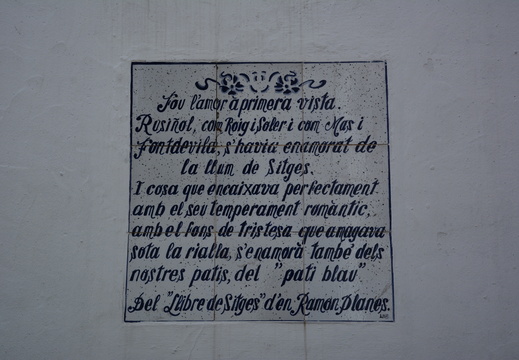 Fou l'amor a primera vista.
Rusiñol, com Roig i Soler i com Mas i
Fontdevila, s'havia enamorat de
la llum de Sitges.
I cosa que encaixava perfectament
amb el seu temperament romàntic,
amb el fons de tristesa que amagava
sota la rialla, s'enamorà també dels
nostres patis, del "pati blau"
Del "Llibre de Sitges" d'en Ramon Planes.